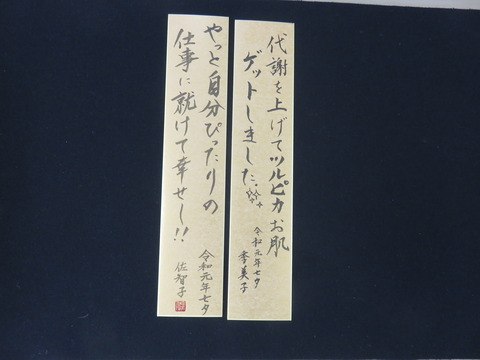 代謝を上げてツルピカお肌
ゲットしました。
令和元年七夕
季美子
やっと自分ぴったりの
仕事に就けて幸せし!!
令和元年七夕
佐智子